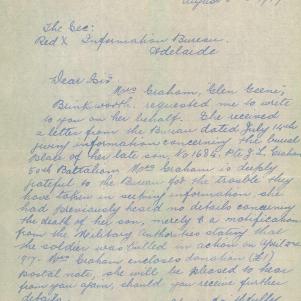 August
The Sec:
Red X Information Bureau.
Adelaide
Dear Sir.
Mrs Graham, Glen Geenie,
Brinkworth. requested me to write
to you on her behalf. She received
a letter from the Bureau dated July 14th
giving information concerning the burial
place of her late son, No 1686. Pte J. L. Graham
50th Battalion Mrs Graham is deeply
grateful to the Bureau for the trouble they
have taken in seeking information. she
had previously heard no details concerning
the death of her son, merely a notification
from the Military Authorities stating that
the soldier was killed in action on April
Mrs Graham encloses donation (£1)
postal note, she will be pleased to hear
from you again, should you receive further
details.